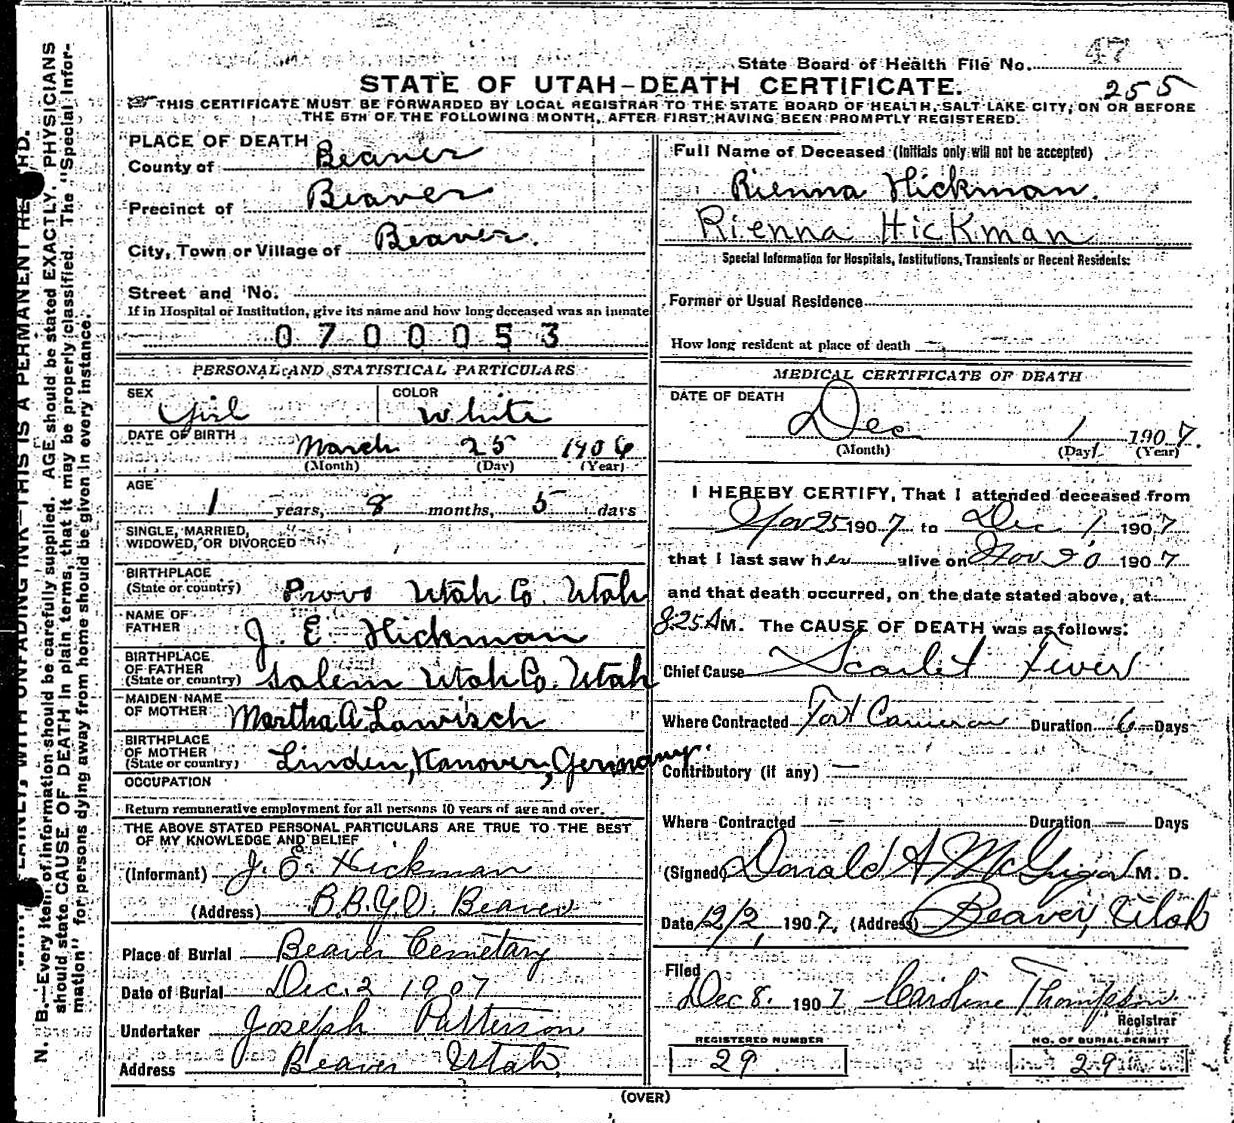 State Board of Health File No. 47
STATE OF UTAH—DEATH CERTIFICATE. 255
THIS CERTIFICATE MUST BE FORWARDED BY LOCAL REGISTRAR TO THE STATE BOARD OF HEALTH, SALT LAKE CITY, ON OR BEFORE
THE 5TH OF THE FOLLOWING MONTH, AFTER FIRST HAVING BEEN PROMPTLY REGISTERED.
PLACE OF DEATH
County of Beaver
Precinct of Beaver
City, Town or Village of Beaver.
Street and No.
If in Hospital or Institution, give its name and how long deceased was an inmate
0700053
PERSONAL AND STATISTICAL PARTICULARS
SEX Girl COLOR White
DATE OF BIRTH March 25 1906
(Month) (Day) (Year)
AGE
1 years, 8 months, 5 days
SINGLE, MARRIED,
WIDOWED, OR DIVORCED
BIRTHPLACE
(State or country) Provo Utah Co. Utah
NAME OF
FATHER J. E. Hickman
BIRTHPLACE
OF FATHER
(State or country) Salem Utah Co. Utah
MAIDEN NAME
OF MOTHER Martha A Lawisch
BIRTHPLACE
OF MOTHER
(State or country) Linden, Hanover, Germany.
OCCUPATION
Return remunerative employment for all persons 10 years of age and over.
THE ABOVE STATED PERSONAL PARTICULARS ARE TRUE TO THE BEST
OF MY KNOWLEDGE AND BELIEF
(Informant) J. E. Hickman
(Address) B.B.Y.U. Beaver
Place of Burial Beaver Cemetary
Date of Burial Dec. 2 1907
Undertaker Joseph Patterson
Address Beaver Utah,
Full Name of Deceased (Initials only will not be accepted)
Rienna Hickman.
Rienna Hickman
Special Information for Hospitals, Institutions, Transients or Recent Residents:
Former or Usual Residence
How long resident at place of death
MEDICAL CERTIFICATE OF DEATH
DATE OF DEATH
Dec 1 1907.
(Month) (Day) (Year)
I HEREBY CERTIFY, That I attended deceased from
Nov 25 1907 to Dec 1, 1907
that I last saw her alive on Nov 30 1907
and that death occurred, on the date stated above, at
8.25 A M. The CAUSE OF DEATH was as follows:
Chief Cause Scarlet Fever
Where Contracted Fort Cameron Duration 6 Days
Contributory (if any) —
Where Contracted — Duration — Days
(Signed) Donald A McGrigor M. D.
Date 12/2, 1907. (Address) Beaver, Utah
Filed
Dec 8. 1907 Caroline Thompson
Registrar
REGISTERED NUMBER NO. OF BURIAL PERMIT
29 29
(OVER)
N. B.—Every item of information should be carefully supplied. AGE should be stated EXACTLY. PHYSICIANS
should state CAUSE OF DEATH in plain terms, that it may be properly classified. The "Special Infor-
mation" for persons dying away from home should be given in every instance.
PLAINLY, WITH UNFADING INK—THIS IS A PERMANENT RECORD.